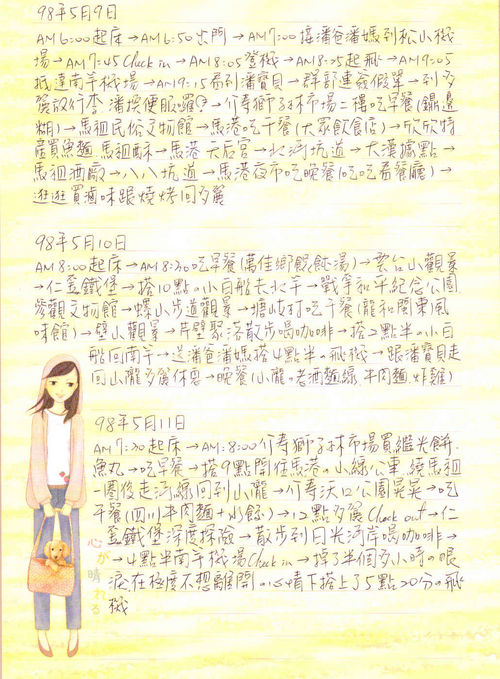 98年5月9日
AM6:00起床→AM6:50出門→AM7:00接潘爸潘媽到松山機
場→AM7:45Check in→AM8:05登機→AM8:25起飛→AM9:05
抵達南竿機場→AM9:15看到潘寶貝→群部連簽假單→到多
賀放行李 潘換便服囉→介壽獅子林市場二樓吃早餐(鍋邊
糊)→馬祖民俗文物館→馬港吃午餐(大眾飲食店)→欣欣特
產買魚麵 馬祖酥→馬港天后宮→北海坑道→大漢據點→
馬祖酒廠→八八坑道→馬港夜市吃晚餐(吃吃看餐廳)→
逛逛買滷味跟燒烤回多賀
98年5月10日
AM8:00起床→AM8:30吃早餐(萬佳鄉餛飩湯)→雲台山觀景
→仁愛鐵堡→搭10點の小白船去北竿→戰爭和平紀念公園
參觀文物館→螺山步道觀景→塘岐村吃午餐(龍和閩東風
味館)→壁山觀景→芹壁聚落散步喝咖啡→搭2點半の小白
船回南竿→送潘爸潘媽搭4點半の飛機→跟潘寶貝走
回山隴多賀休息→晚餐(小隴の老酒麵線 牛肉麵 炸雞)
98年5月11日
AM7:30起床→AM:8:00介壽獅子林市場買繼光餅.
魚丸→吃早餐→搭9點開往馬港の山線公車 繞馬祖
一圈後走海線回到山隴→介壽沃口公園晃晃→吃
午餐(四川牛肉麵+水餃)→12點多賀Check out→仁
愛鐵堡深度探險→散步到日光海岸喝咖啡→
→4點半南竿機場Check in→掉了半個多小時の眼
淚在極度不想離開の心情下搭上了5點20分の飛
機
心が晴れる